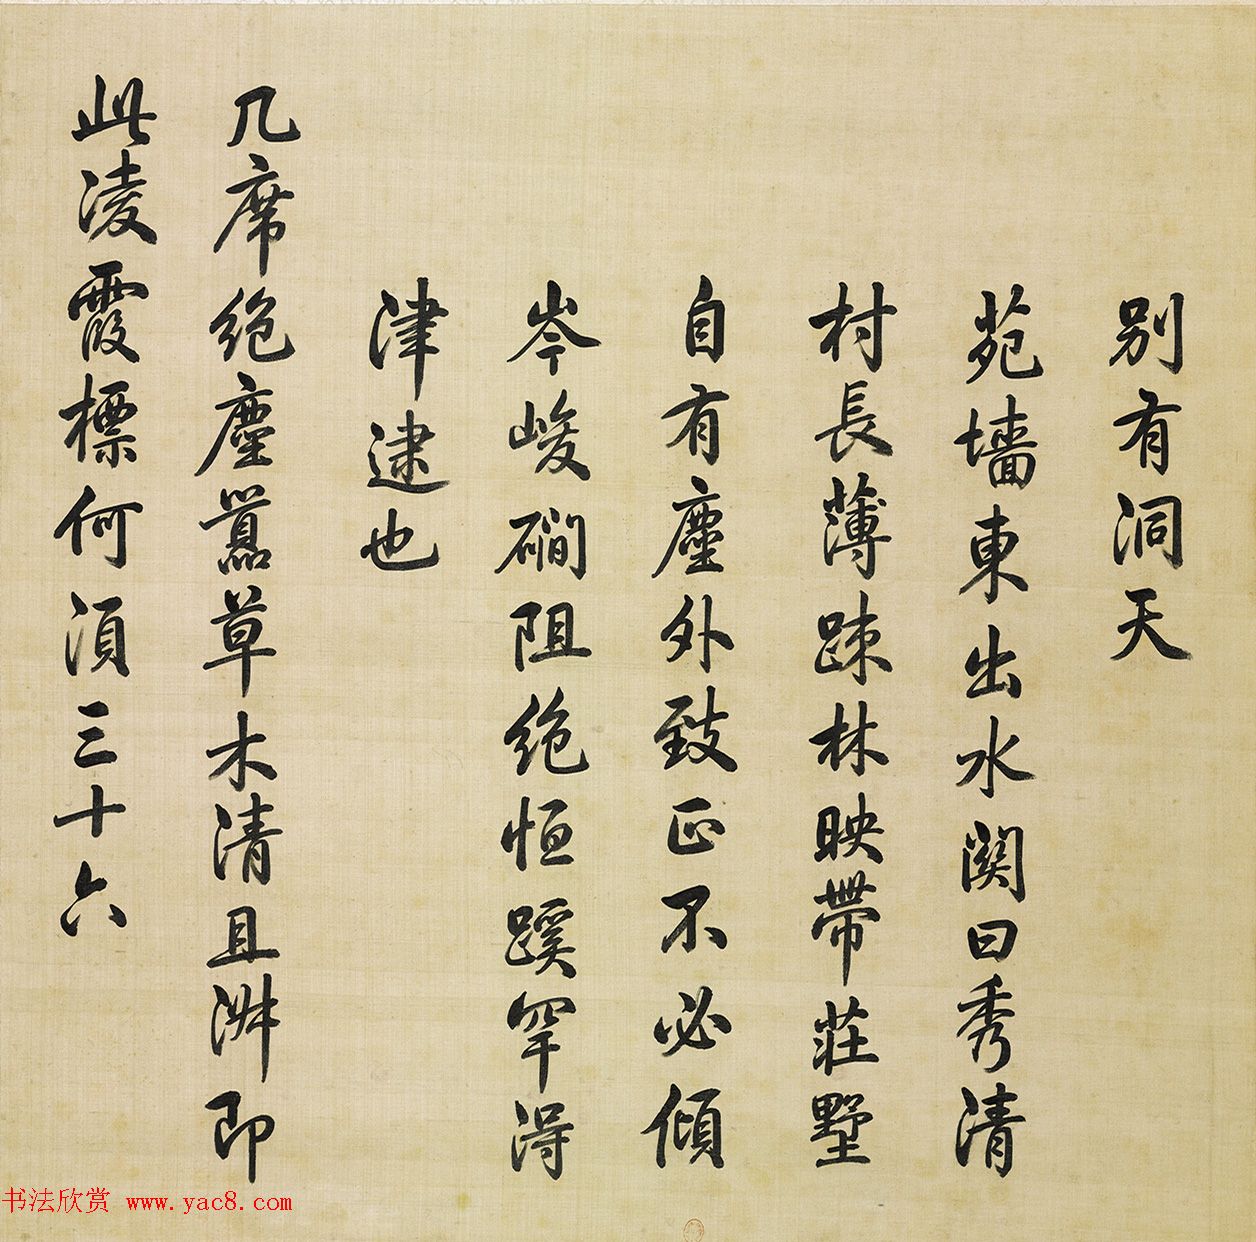 别有洞天
苑墙東出水関曰秀清
村長薄疎林映帶莊墅
自有塵外致正不必傾
岑峻磵阻絶恒蹊罕得
津逮也
几席絶塵囂草木清且淑即
此凌霞標何須三十六
书法欣赏 www.yac8.com